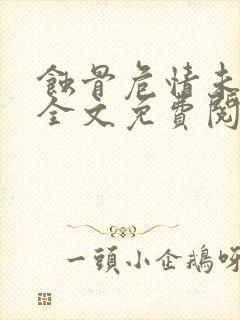 蝕骨危情未
全文免費閱
一頭小企鵝呀